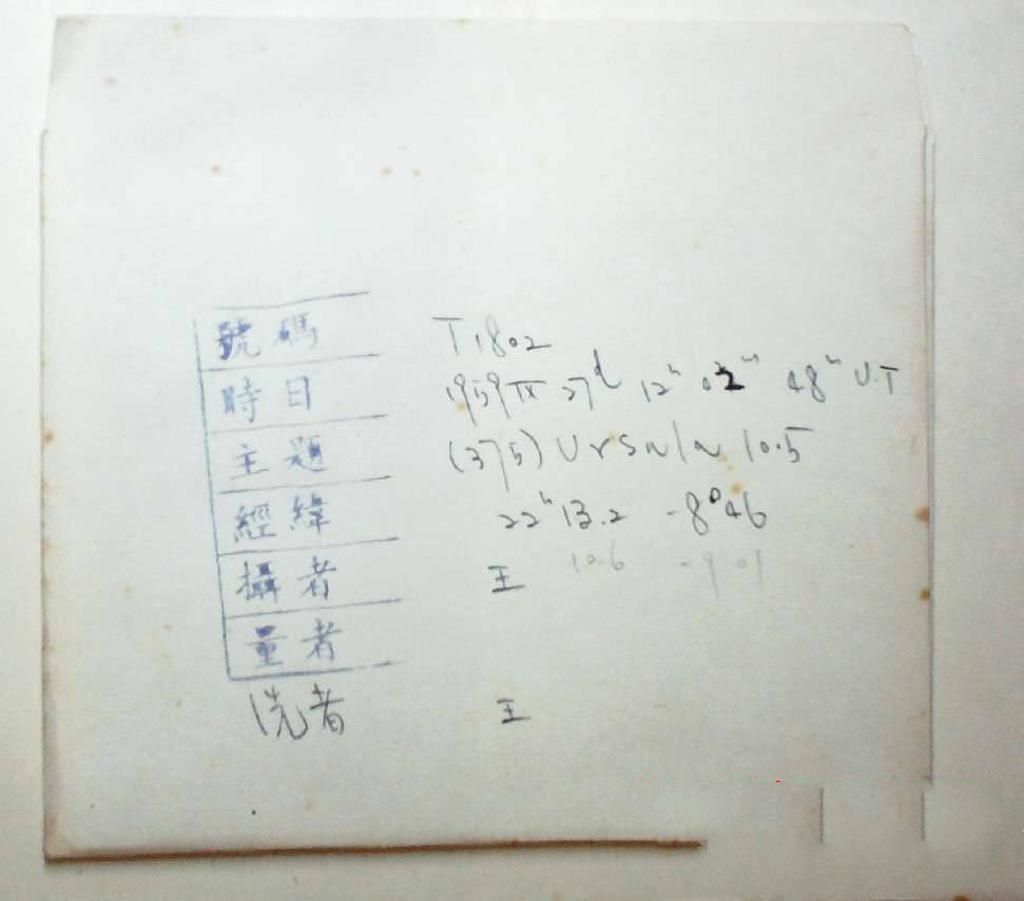 號碼 T1802
時日 1959 IX 27d 12h 02m 48s U.T
主題 (375) Ursula 10.5
經緯 22h 13.2 -8°46
攝者 王 10.6 -9 01
量者
洗者 王